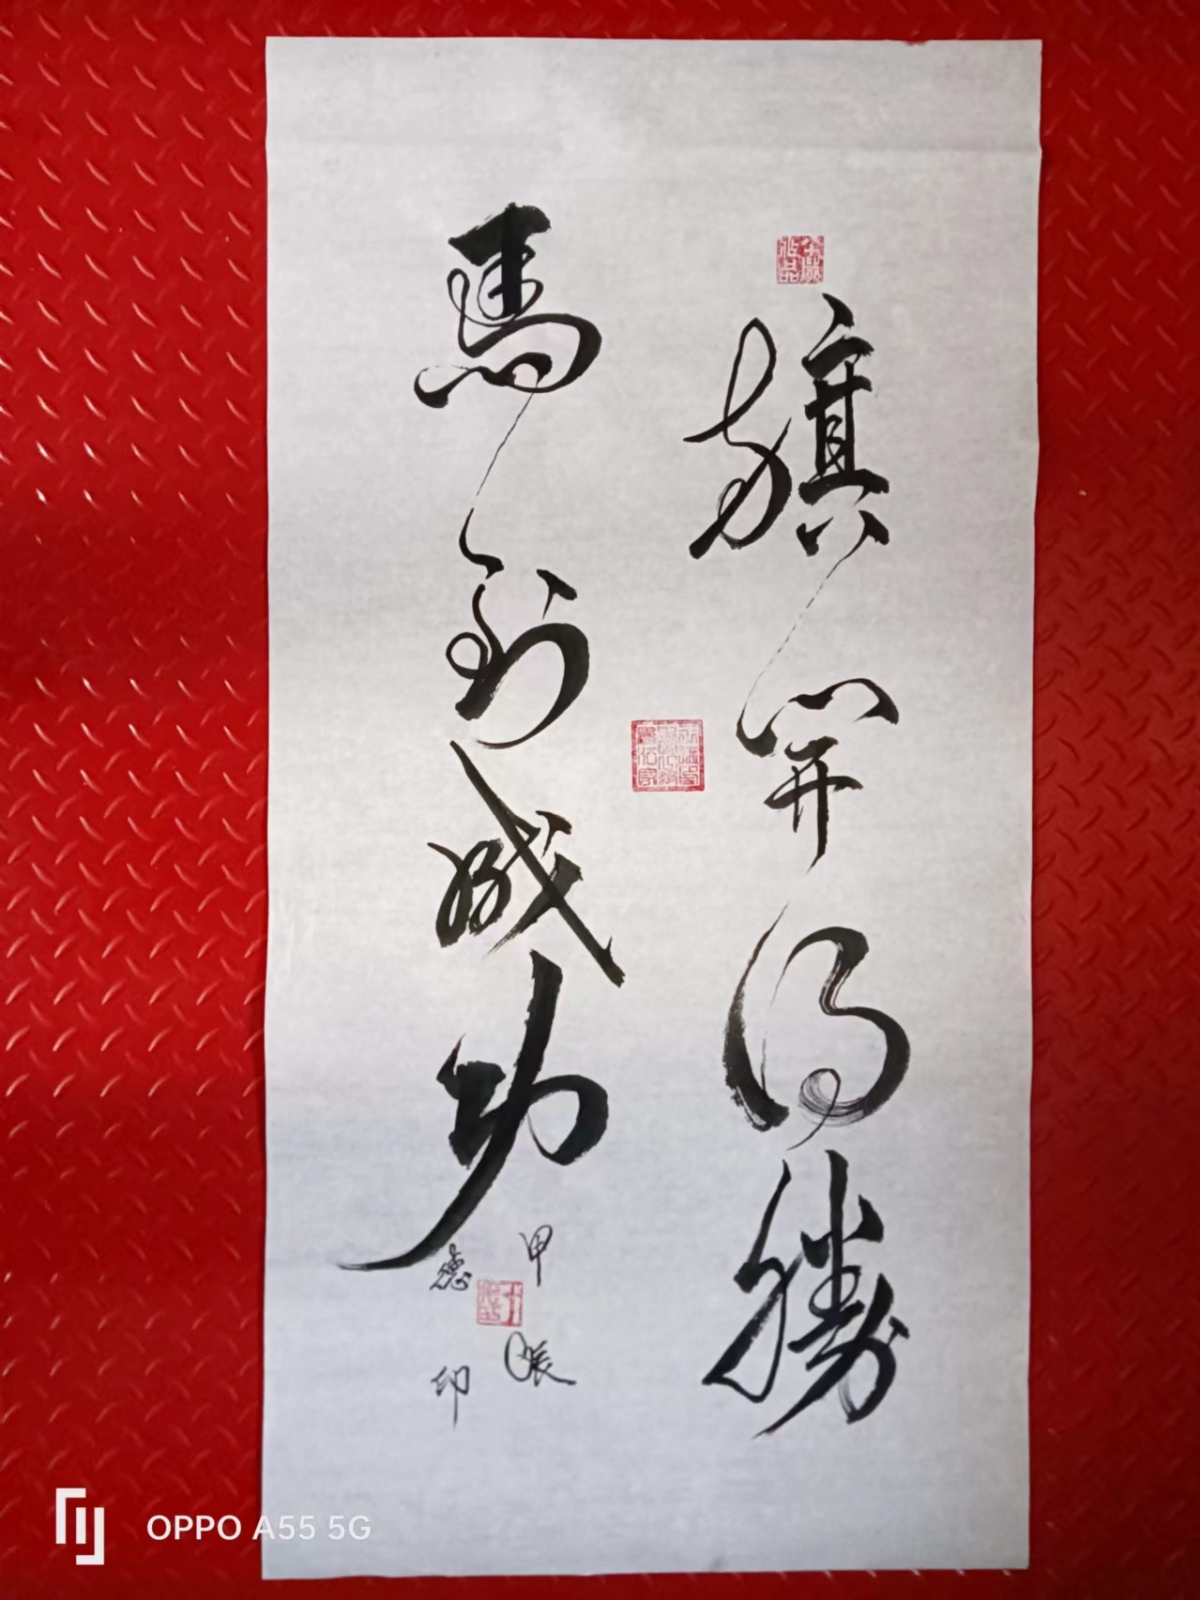 旗開得勝
馬到成功
甲辰
德印
OPPO A55 5G